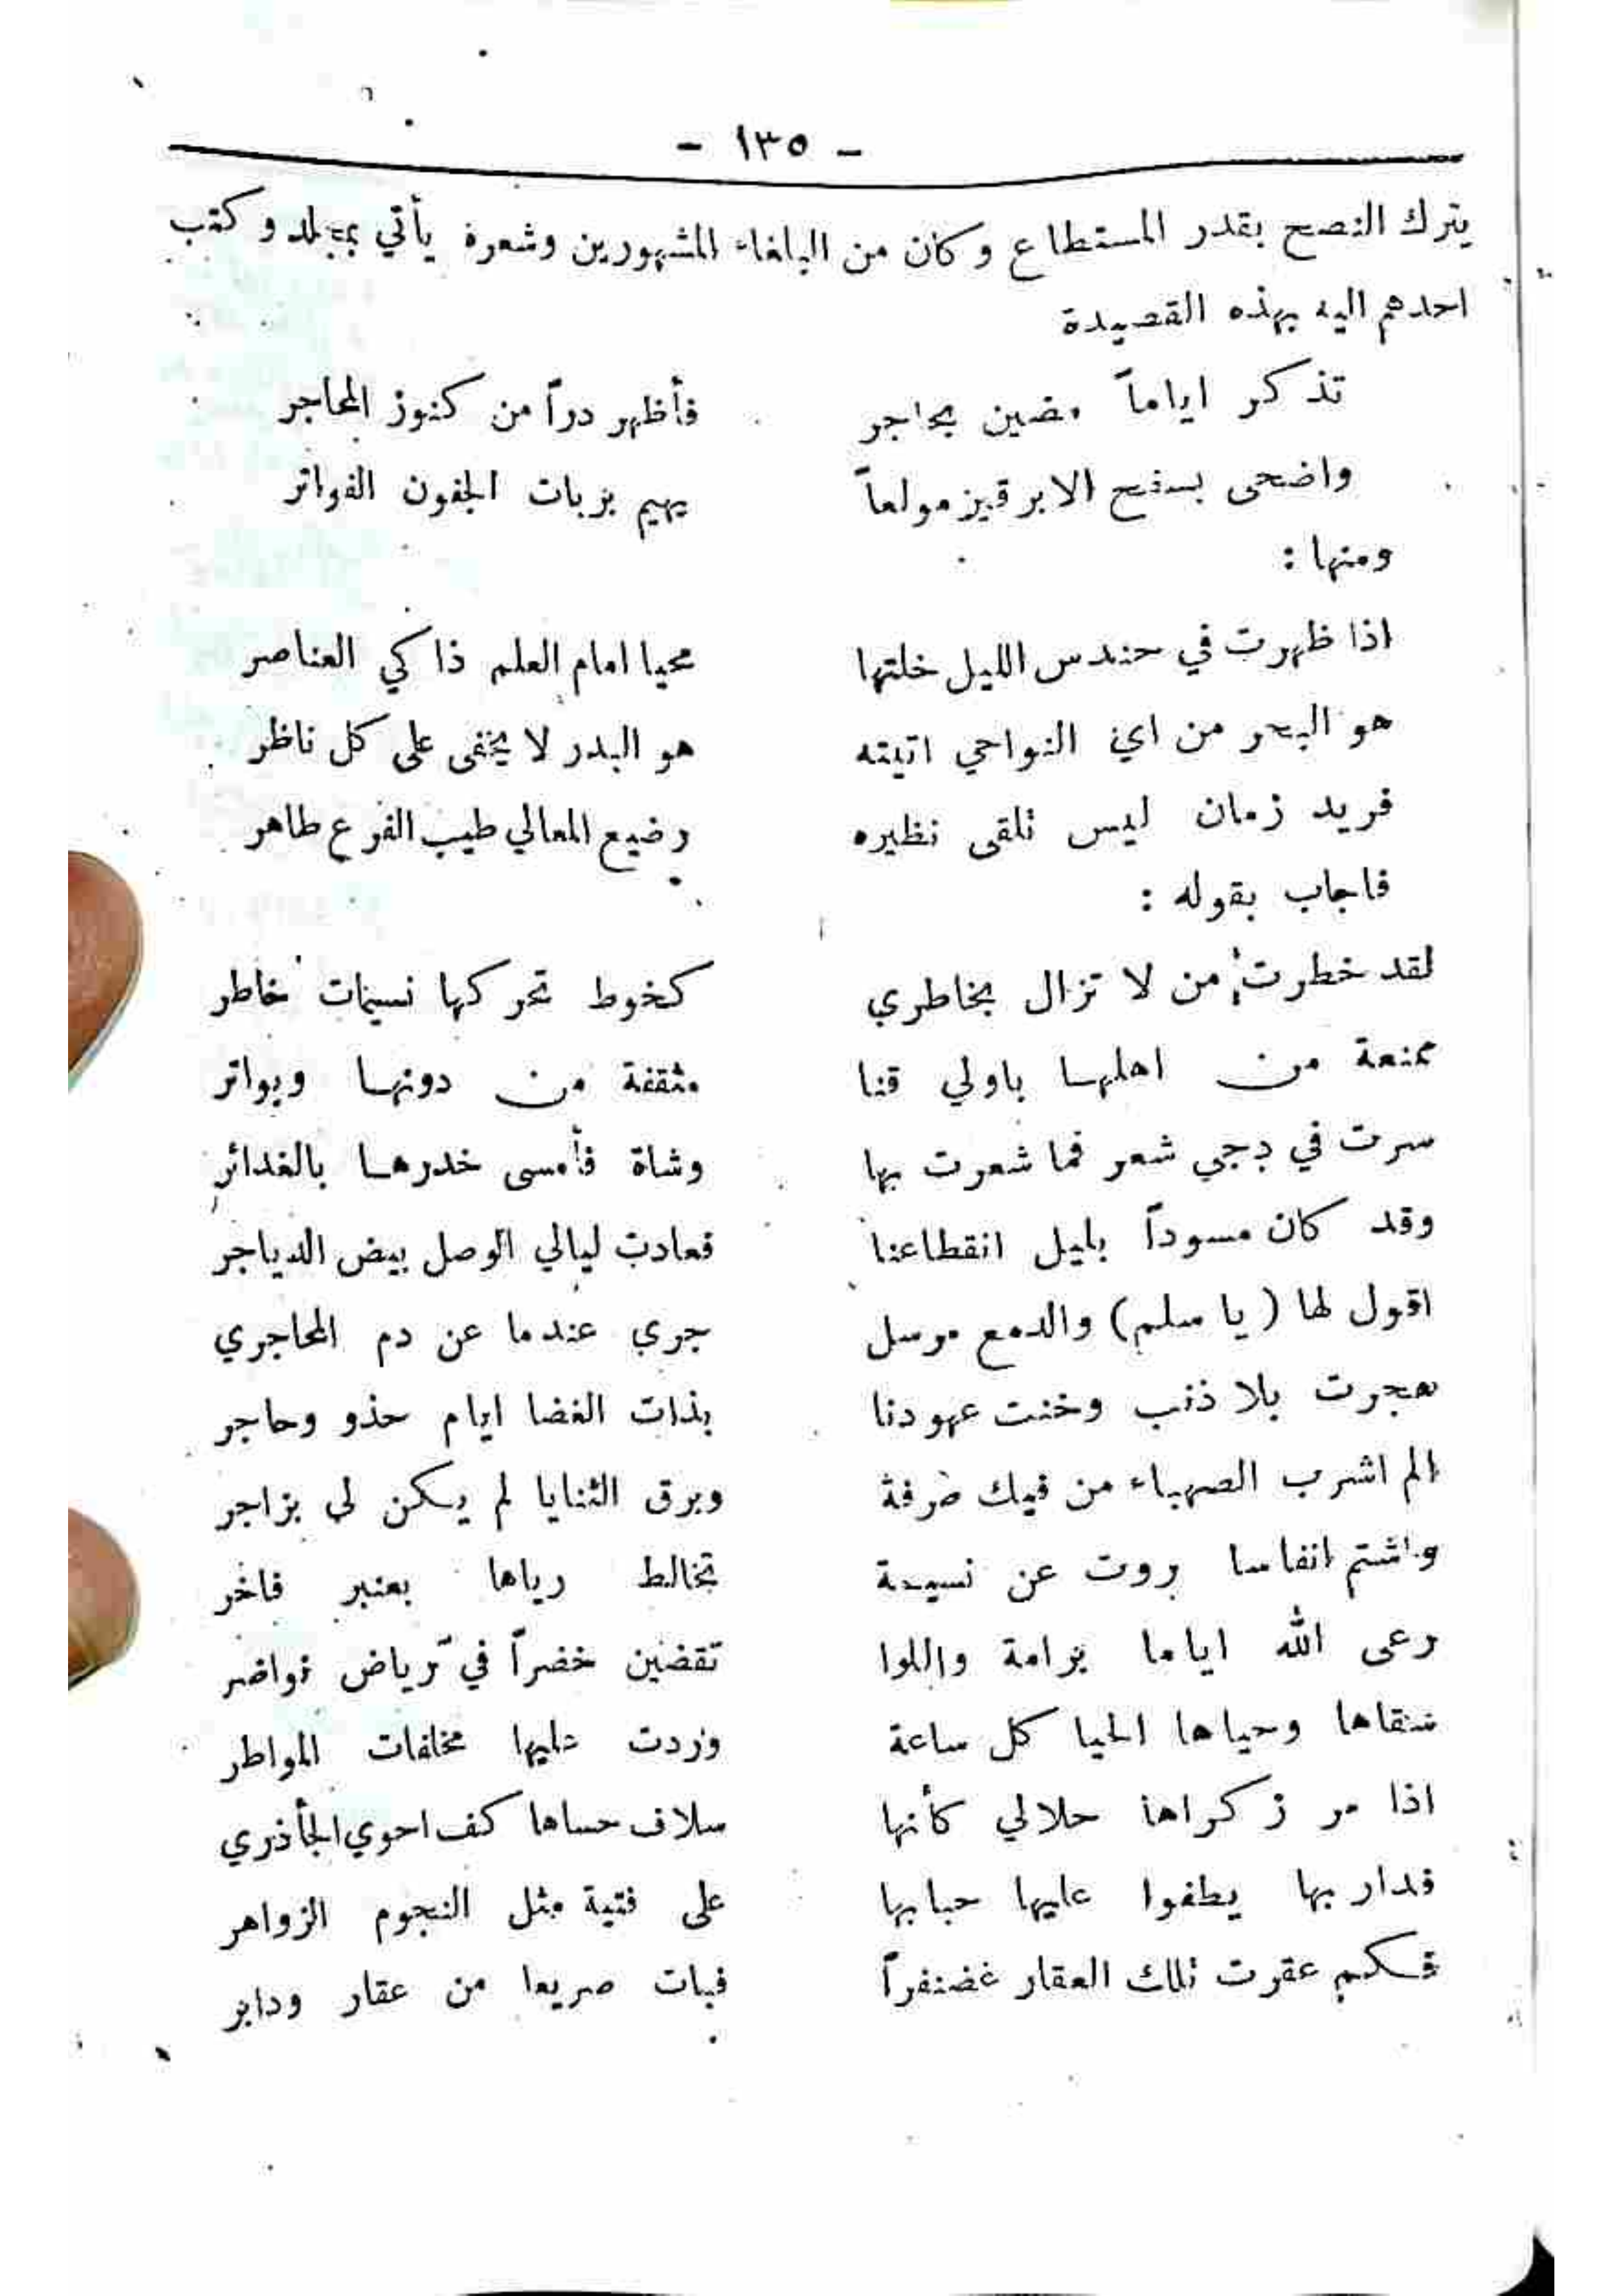 - ١٣٥ -
يترك النصح بقدر المستطاع وكان من البلغاء المشهورين وشعره يأتي بمجلد وكتب
احدهم اليه بهذه القصيدة
تذكر اياماً مضين بحاجر فأظهر دراً من كنوز المحاجر
واضحى بسفح الابرقين مولعاً يهيم بربات الجفون الفواتر
ومنها :
اذا ظهرت في حندس الليل خلتها محيا امام العلم ذاكي العناصر
هو البحر من اي النواحي اتيته هو البدر لا يخفى على كل ناظر
فريد زمان ليس تلقى نظيره رضيع المعالي طيب الفرع طاهر
فاجاب بقوله :
لقد خطرت من لا تزال بخاطري كخوط تحركها نسيمات خاطر
ممنعة من اهلها باولي قنا مثقفة من دونها وبواتر
سرت في دجى شعر فما شعرت بها وشاة فأمسى خدرها بالغدائر
وقد كان مسوداً بليل انقطاعنا فعادت ليالي الوصل بيض الدياجر
اقول لها ( يا سلم ) والدمع مرسل جرى عندما عن دم المحاجري
هجرت بلا ذنب وخنت عهودنا بذات الغضا ايام حذو وحاجر
الم اشرب الصهباء من فيك صرفة وبرق الثنايا لم يكن لي بزاجر
واشتم انفاسا روت عن نسيمة تخالط رياها بعنبر فاخر
رعى الله اياما برامة واللوا تقضين خضراً في رياض نواضر
سقاها وحياها الحيا كل ساعة وردت عليها مخلفات المواطر
اذا مر زكراها حلالي كأنها سلاف حساها كف احوي الجأذري
فدار بها يطفوا عليها حبابها على فتية مثل النجوم الزواهر
فكم عقرت تلك العقار غضنفراً فبات صريعا من عقار ودابر